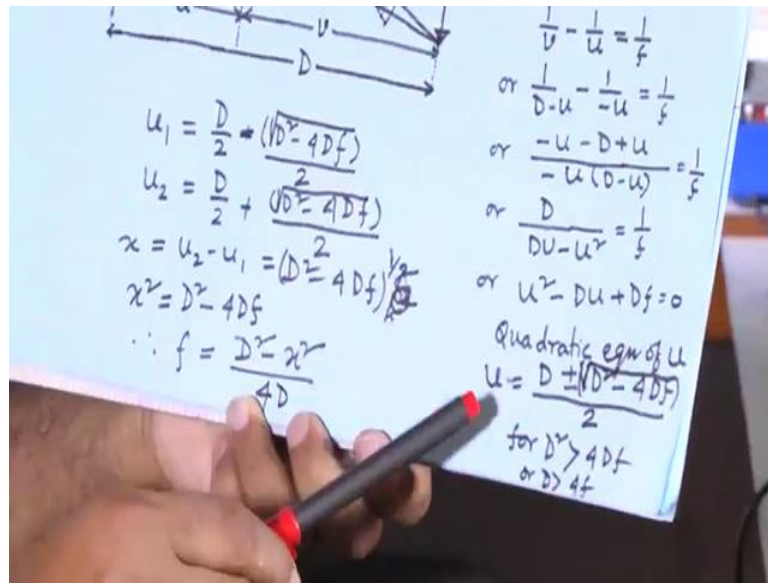 u
v
D
u₁ = D/2 - (√D² - 4Df)/2
u₂ = D/2 + (√D² - 4Df)/2
x = u₂ - u₁ = (D² - 4Df)^1/2
x² = D² - 4Df
∴ f = (D² - x²)/4D
1/v - 1/u = 1/f
or 1/(D-u) - 1/-u = 1/f
or (-u - D + u)/(-u(D-u)) = 1/f
or D/(Du - u²) = 1/f
or u² - Du + Df = 0
Quadratic eqn of u
u = (D ± (√D² - 4Df))/2
for D² > 4Df
or D > 4f